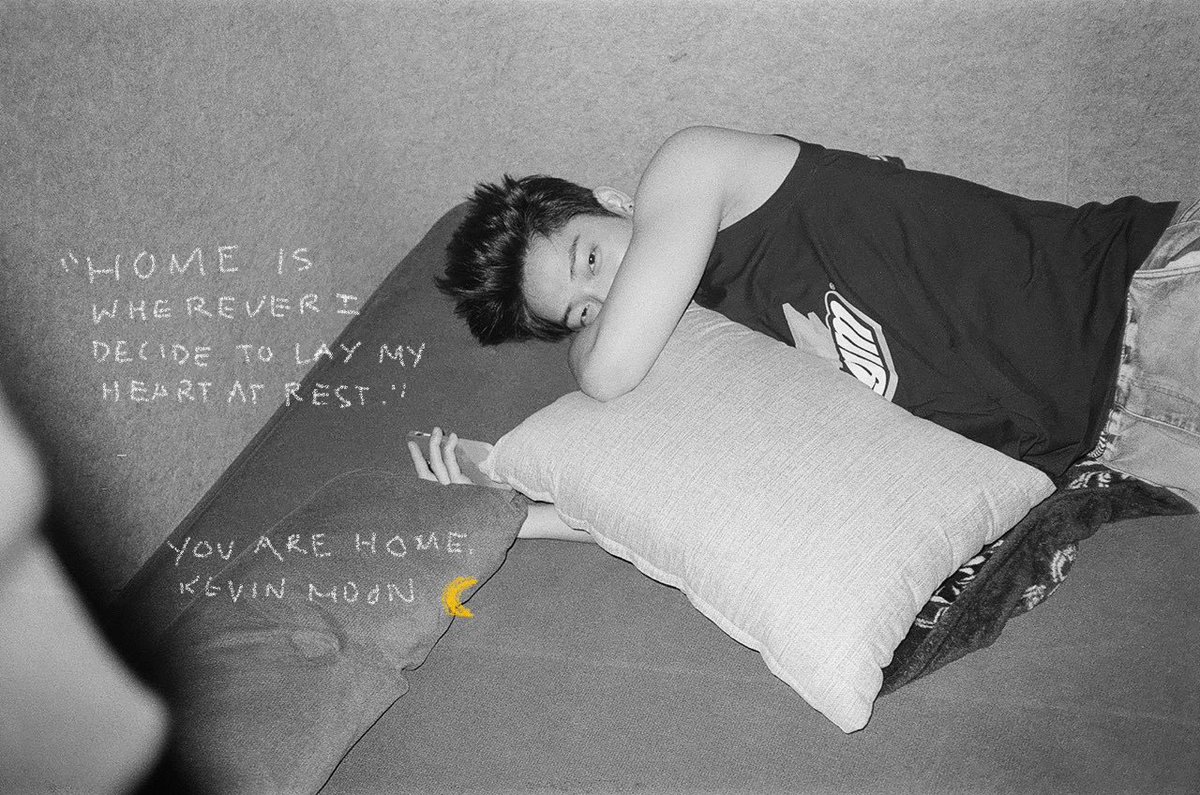 "HOME IS
WHEREVER I
DECIDE TO LAY MY
HEART AT REST."
YOU ARE HOME.
KEVIN MOON